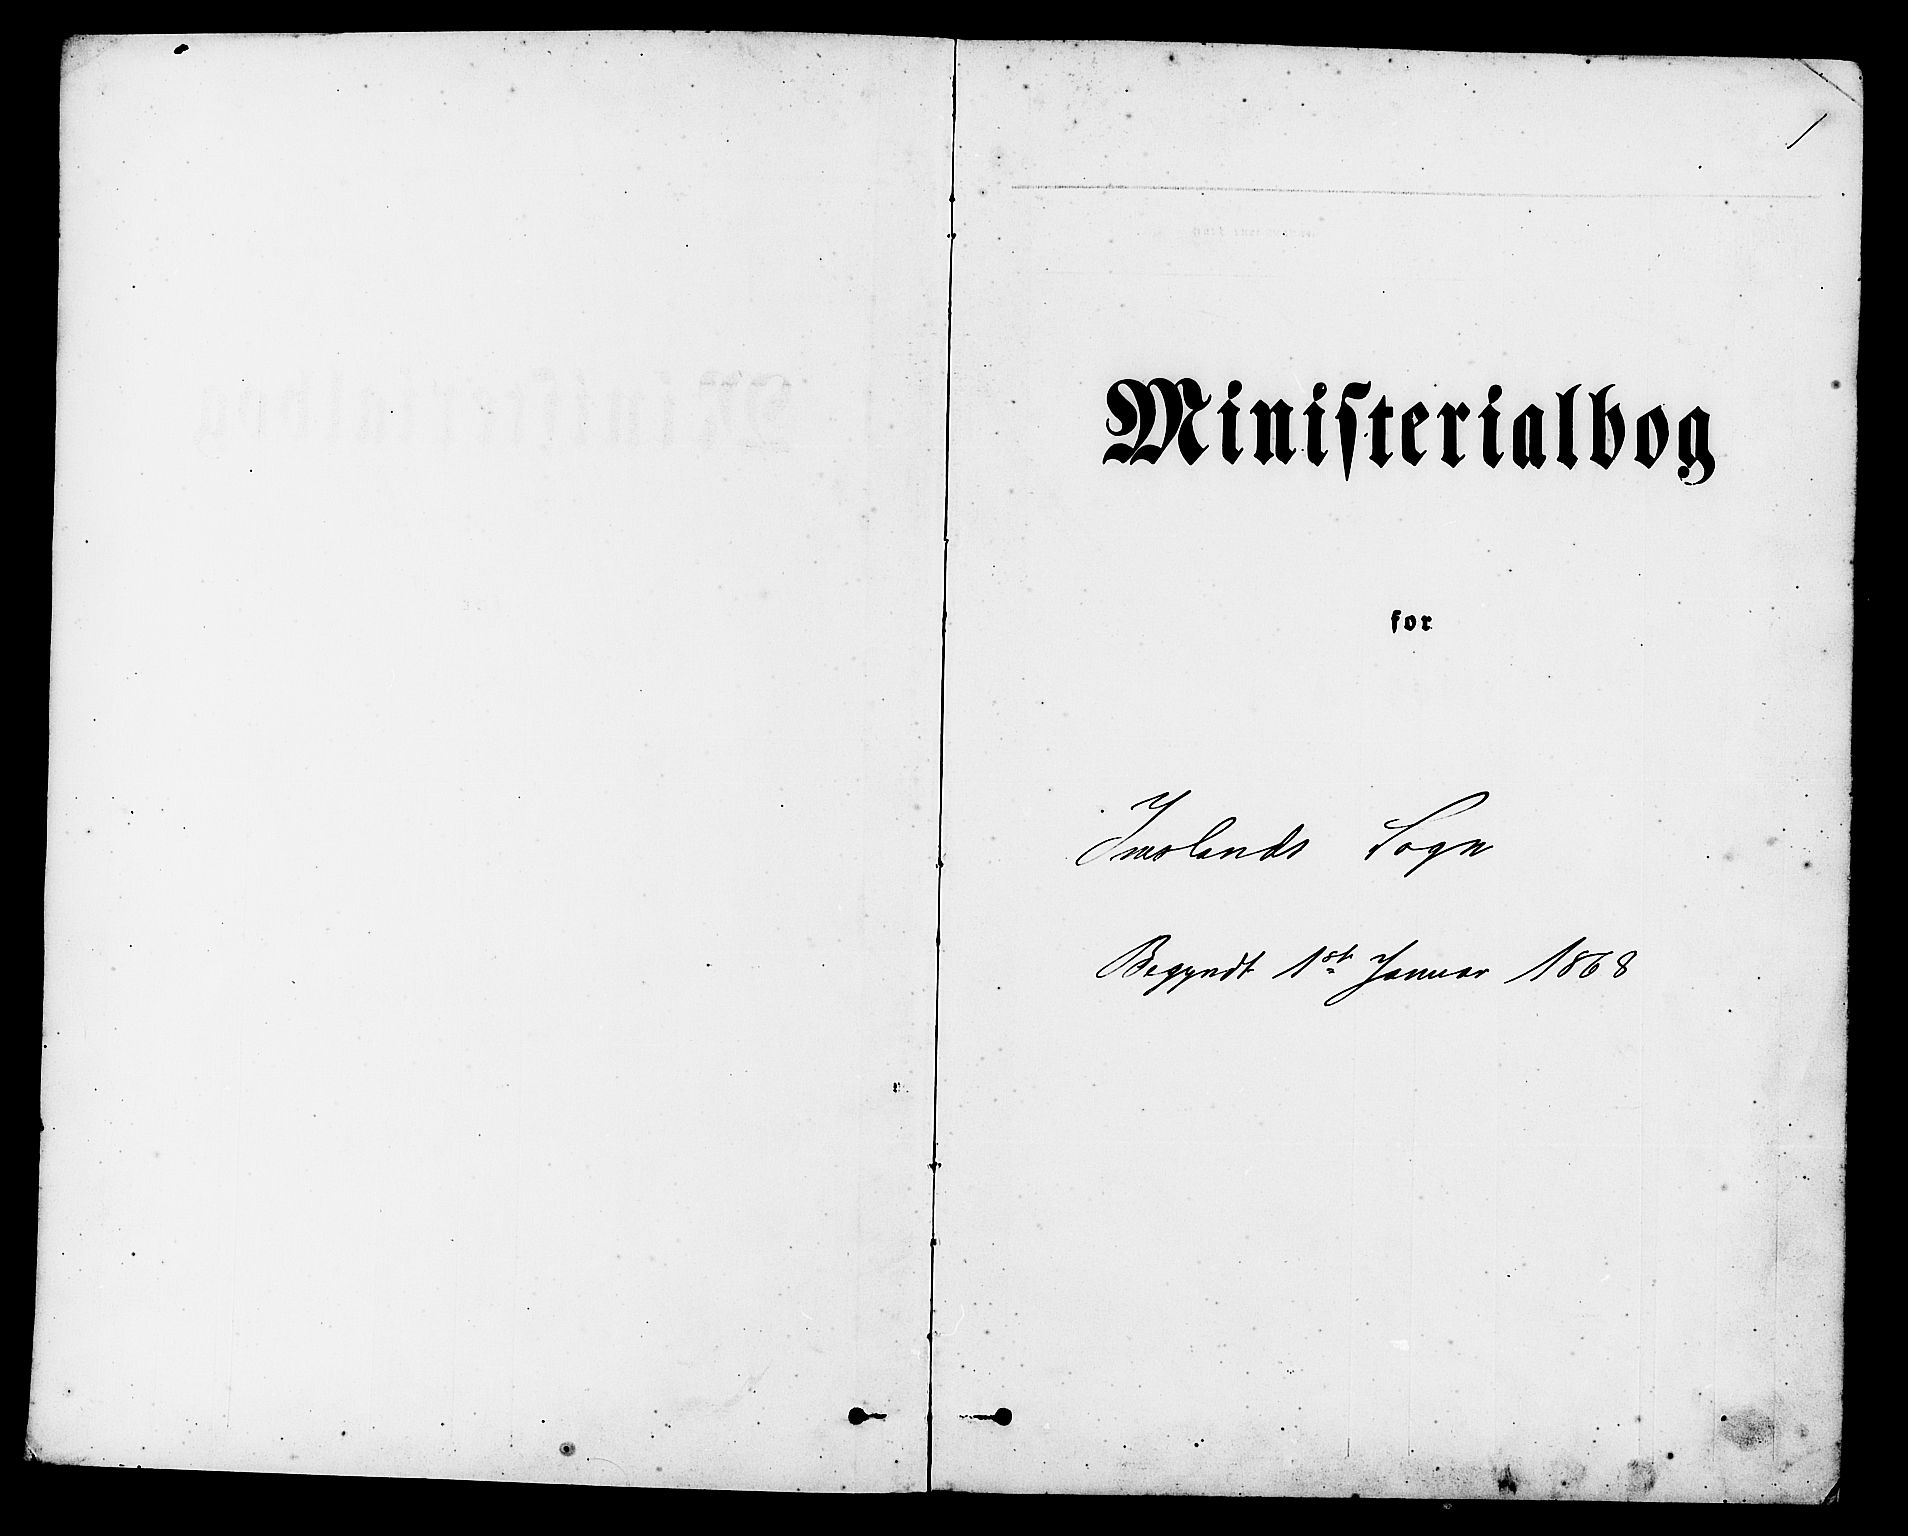 1
Ministerialbog
for
Imslands Sogn
Begyndt 1st Januar 1868